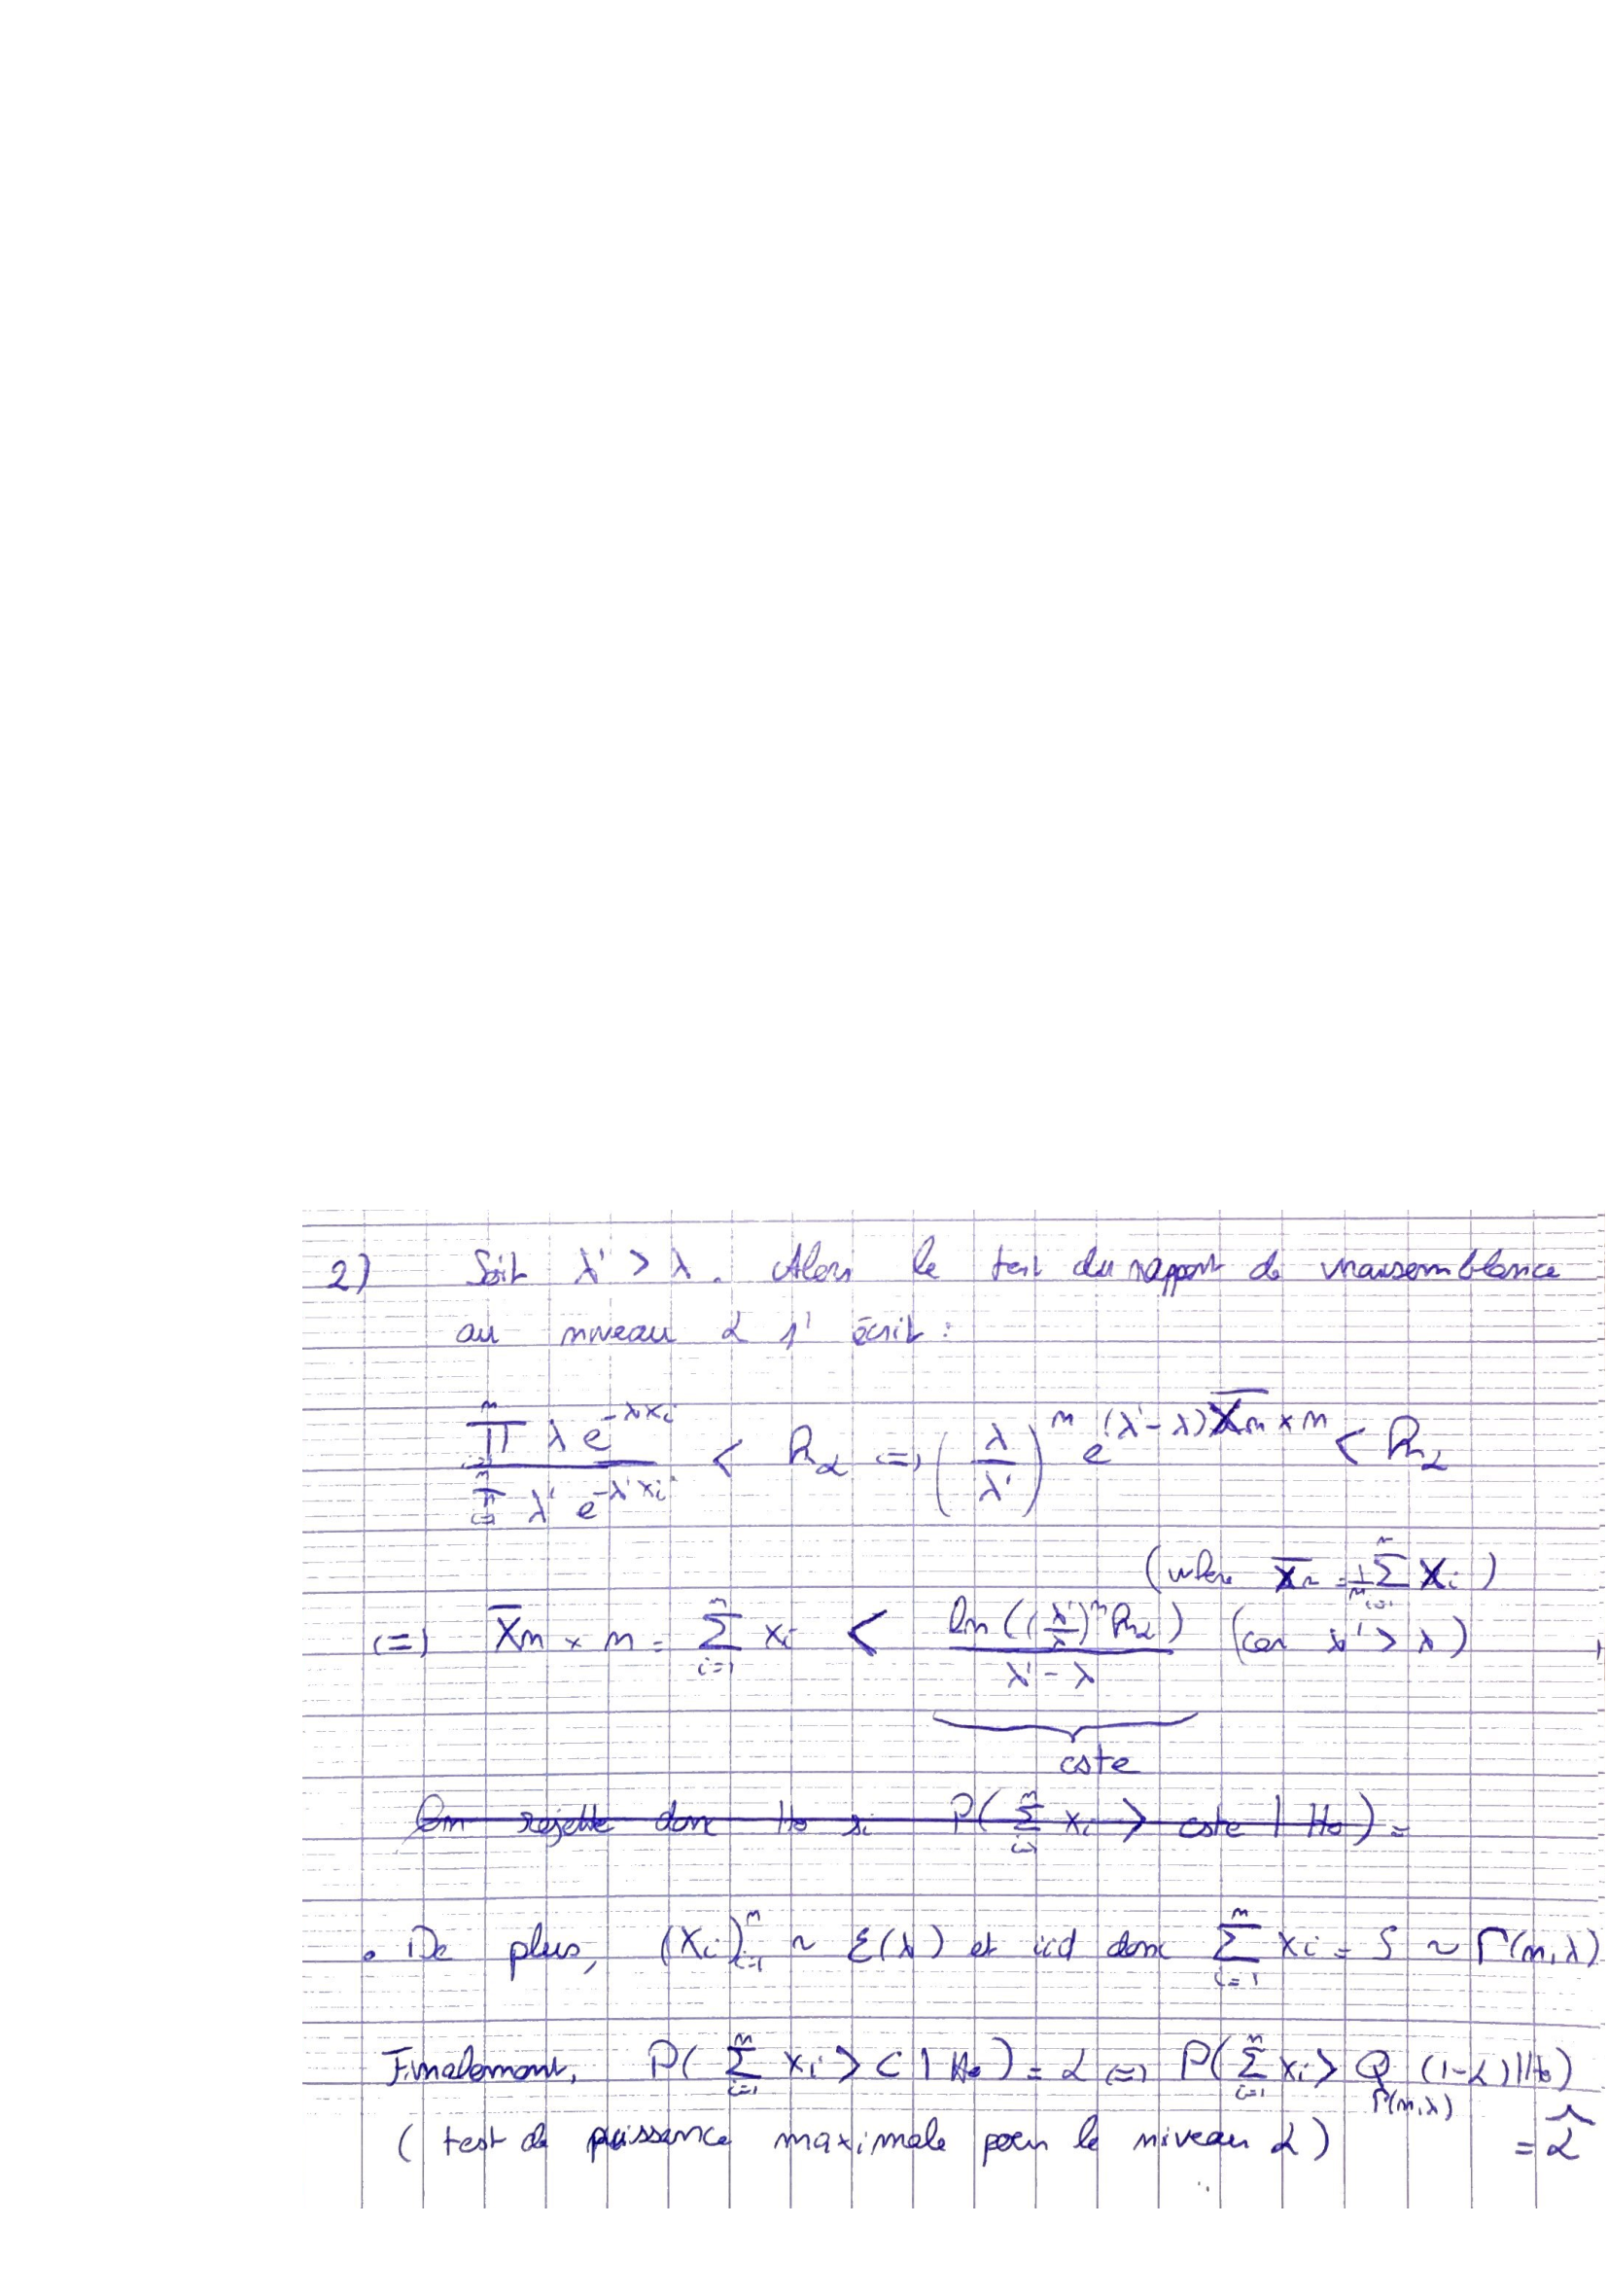 2) Soit λ' > λ. Alors le test du rapport de vraisemblance
au niveau α s'écrit :
∏_{i=1}^{n} λ e^{-λxi} / ∏_{i=1}^{n} λ' e^{-λ'xi} < Rα <=> (λ/λ')^n e^{(λ'-λ)X̄n × n} < Rα
(where X̄n = 1/n ∑_{i=1}^{n} Xi)
<=> X̄n × n = ∑_{i=1}^{n} xi < ln((λ'/λ)^n Rα) / (λ' - λ) (car λ' > λ)
cste
On rejette donc H0 si P(∑_{i=1}^{n} xi > cste | H0) =
• De plus, (Xi)_{i=1}^{n} ~ ℰ(λ) et iid donc ∑_{i=1}^{n} xi = S ~ Γ(n,λ)
Finalement, P(∑_{i=1}^{n} xi > C | H0) = α <=> P(∑_{i=1}^{n} xi > Q_{Γ(n,λ)} (1-α) | H0)
(test de puissance maximale pour le niveau α) = α̂